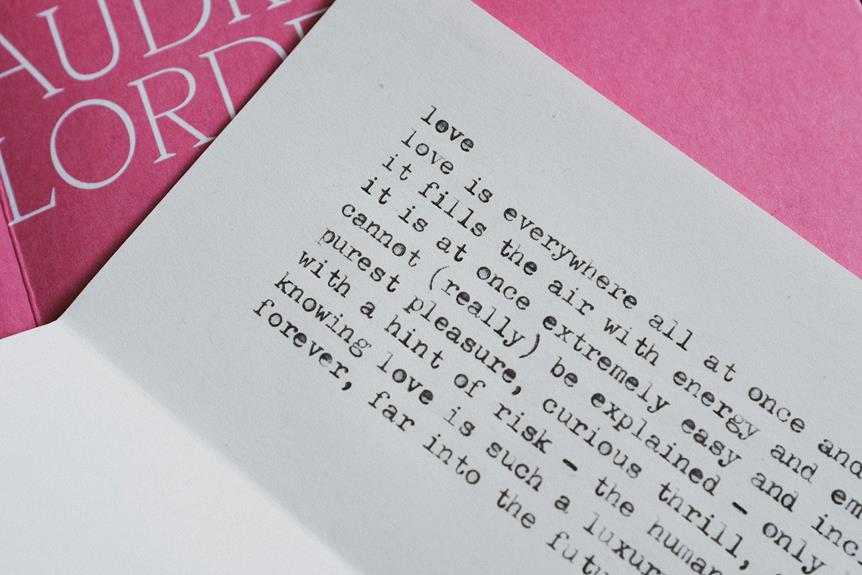 AUDR
LORDE
love
love is everywhere all at once and
it fills the air with energy and
it is at once extremely easy and
cannot (really) be explained - only
purest pleasure, curious thrill,
with a hint of risk - the human
knowing love is such a
forever, far into the